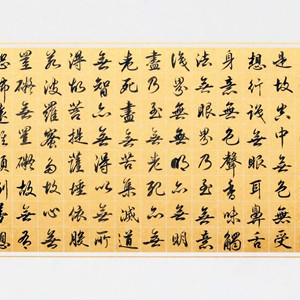 是故空中無色無受
想行識無眼耳鼻舌
身意無色聲香味觸
法無眼界乃至無意
識界無無明亦無明
盡乃至無老死亦無
老死盡無苦集滅道
無智亦無得以無所
得故菩提薩埵依般
若波羅蜜多故心無
罣礙無罣礙故無有
恐怖遠離顛倒夢想